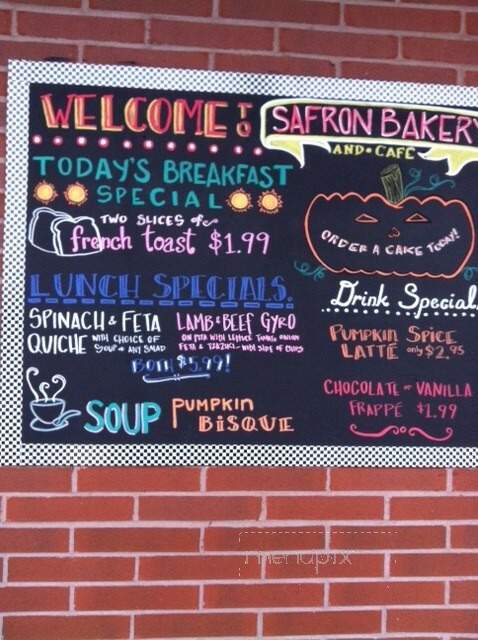 WELCOME TO
SAFRON BAKERY
AND • CAFÉ
TODAY'S BREAKFAST
SPECIAL
TWO SLICES of
french toast $1.99
ORDER A CAKE TODAY!
LUNCH SPECIALS.
SPINACH & FETA
QUICHE WITH CHOICE OF
SOUP or ANY SALAD
LAMB & BEEF GYRO
ON PITA WITH LETTUCE TOMATO ONION
FETA & TZAZIKI - WITH SIDE OF CHIPS
BOTH $5.99!
SOUP PUMPKIN
BISQUE
Drink Special
PUMPKIN SPICE
LATTÉ only $2.95
CHOCOLATE or VANILLA
FRAPPÉ $1.99
menupix